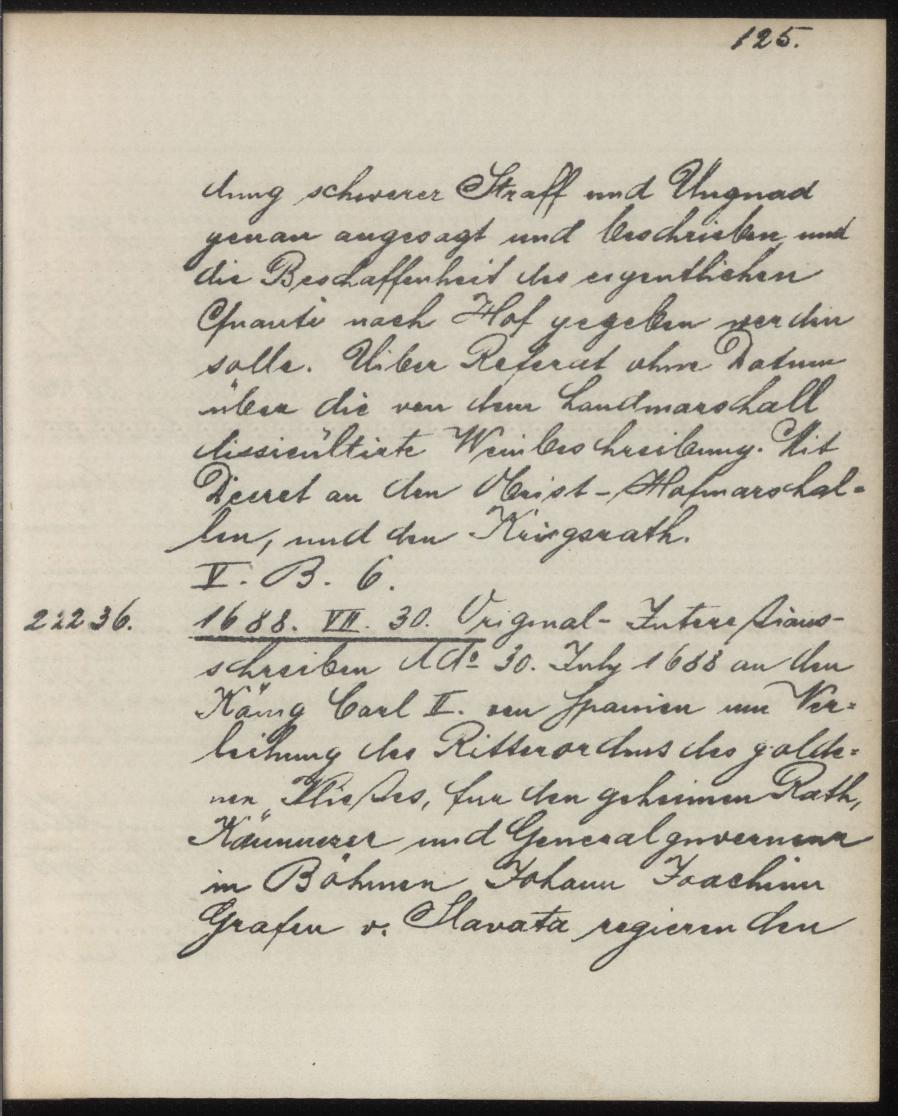 125.
dung schwerer Straff und Ungnad
genau angesagt und beschrieben und
die Beschaffenheit des eigentlichen
Quanti nach Hof gegeben werden
solle. Uiber Referat ohne Datum
über die von dem Landmarschall
dissicultirte Weinbeschreibung. Mit
Decret an den Obrist-Hofmarschal=
len, und den Kriegsrath.
V. B. 6.
22236. 1688. VII. 30. Original-Interessiaus-
schreiben ddo 30. July 1688 an den
König Carl II. von Spanien um Ver=
leihung des Ritterordens des golde=
nen Vließes, fur den geheimen Rath,
Kämmerer und Generalguverneur
in Böhmen Johann Joachim
Grafen v. Slavata regierenden